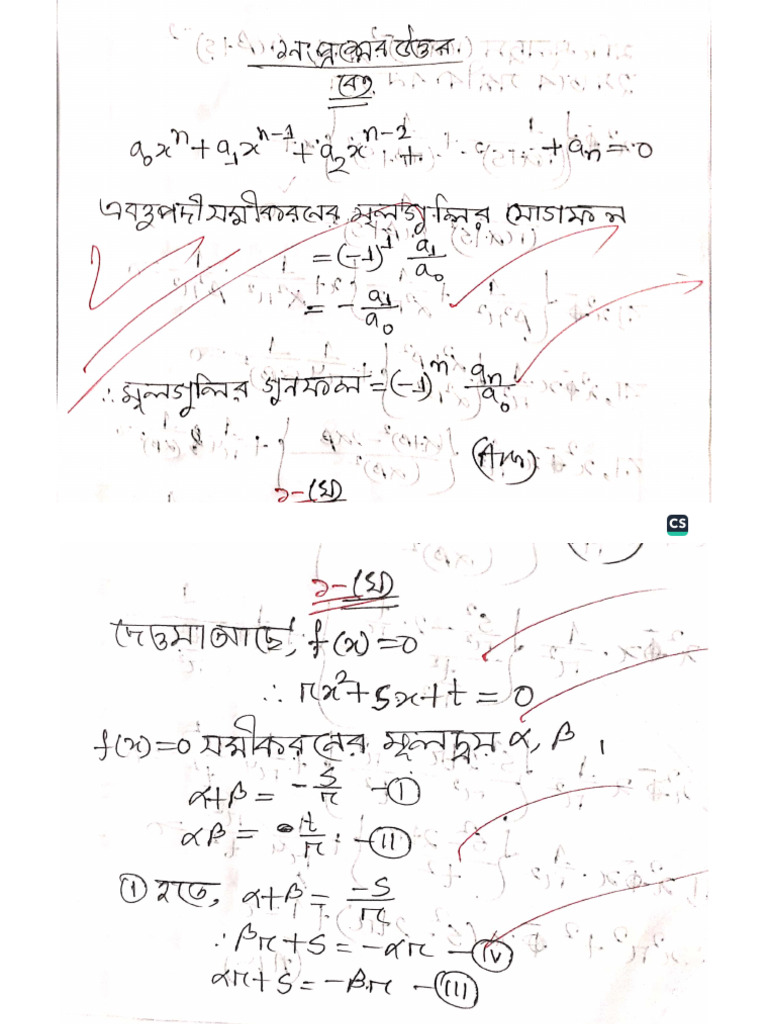 ১নং প্রশ্নের উত্তর
a₀xⁿ + a₁xⁿ⁻¹ + a₂xⁿ⁻² + · · · + aₙ = 0
বহুপদী সমীকরনের মূলগুলির যোগফল
= (-1)¹ a₁/a₀
= - a₁/a₀
∴ মূলগুলির গুনফল = (-1)ⁿ aₙ/a₀
(Ans)
১-(খ)
CS
১-(খ)
দেওয়া আছে, f(x)=0
∴ rx²+sx+t = 0
f(x)=0 সমীকরনের মূলদ্বয় α, β ।
α+β = - s/r - (I)
αβ = t/r - (II)
(I) হতে, α+β = -s/r
∴ βr+s = -αr - (IV)
αr+s = -βr - (III)